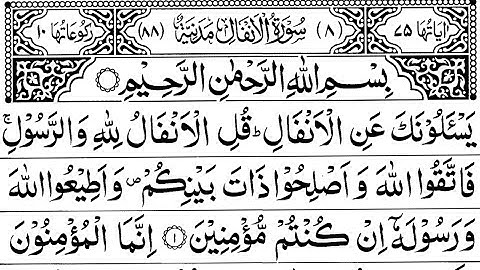 اٰیَاتُهَا ۷۵ (۸) سُوْرَةُ الْاَنْفَالِ مَدَنِیَّةٌ (۸۸) رُكُوْعَاتُهَا ۱۰
بِسْمِ اللّٰهِ الرَّحْمٰنِ الرَّحِیْمِ
یَسْـَٔلُوْنَكَ عَنِ الْاَنْفَالِ ؕ قُلِ الْاَنْفَالُ لِلّٰهِ وَ الرَّسُوْلِ ۚ
فَاتَّقُوا اللّٰهَ وَ اَصْلِحُوْا ذَاتَ بَیْنِكُمْ ۪ وَ اَطِیْعُوا اللّٰهَ
وَ رَسُوْلَهٗۤ اِنْ كُنْتُمْ مُّؤْمِنِیْنَ ۱ اِنَّمَا الْمُؤْمِنُوْنَ